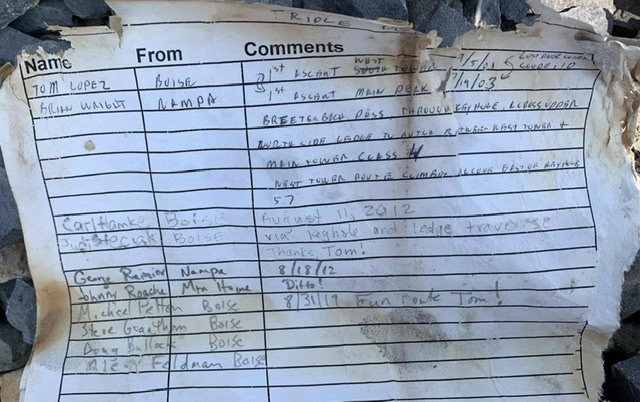 TRIPLE
Name From Comments
TOM LOPEZ BOISE 1st ASCENT WEST TOWER 9/5/01
BRIAN WRIGHT NAMPA 1st ASCENT MAIN PEAK 7/19/03
PASS, THROUGH KEYHOLE, ACROSS UPPER
NORTH SIDE LEDGE TO NOTCH BETWEEN WEST TOWER +
MAIN TOWER CLASS 4
WEST TOWER ROUTE CLIMBED EAST OF KEYHOLE
5.7
Carl Hamke BOISE August 11, 2012
Judi BOISE via keyhole and ledge traverse
Thanks Tom!
Georg Nampa 8/18/12
Johnny Roache Mtn Home Ditto!
Michael Pelton Boise 8/31/19 Fun route Tom!
Steve Grantham Boise
Doug Bullock Boise
Alex Feldman Boise